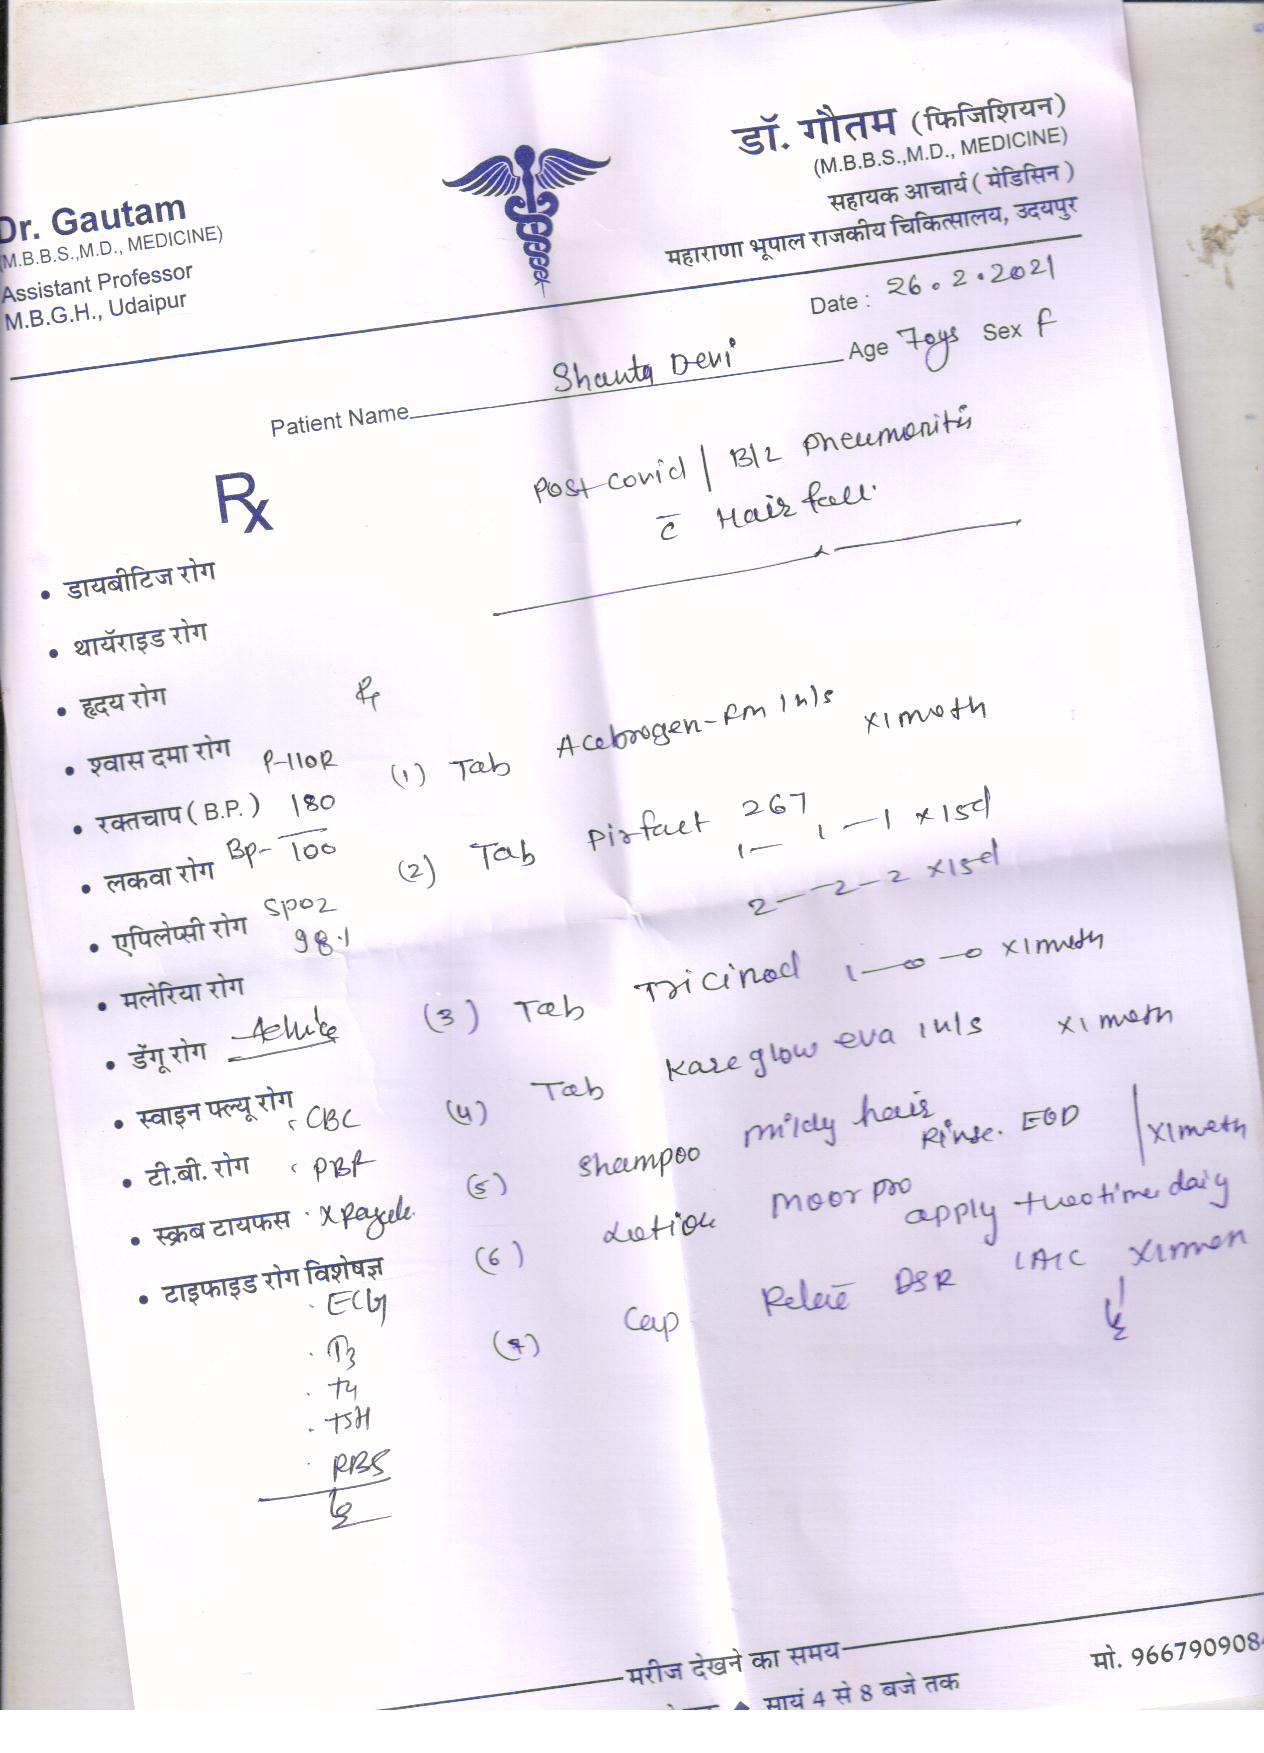 Dr. Gautam
(M.B.B.S.,M.D., MEDICINE)
Assistant Professor
M.B.G.H., Udaipur
डॉ. गौतम (फिजिशियन)
(M.B.B.S.,M.D., MEDICINE)
सहायक आचार्य ( मेडिसिन )
महाराणा भूपाल राजकीय चिकित्सालय, उदयपुर
Date : 26.2.2021
Patient Name Shanta Devi Age 70ys Sex F
Rx
Post covid | B/L Pneumonitis
c̄ Hair fall.
• डायबीटिज रोग
• थायॅराइड रोग
• हृदय रोग
• श्वास दमा रोग
• रक्तचाप ( B.P. )
• लकवा रोग
• एपिलेप्सी रोग
• मलेरिया रोग
• डेंगू रोग
• स्वाइन फ्ल्यू रोग
• टी.बी. रोग
• स्क्रब टायफस
• टाइफाइड रोग विशेषज्ञ
P-110R
Bp- 180/100
SpO2
98%
Advice
CBC
PBF
X Ray
ECG
T3
T4
TSH
RBS
Rx
(1) Tab Acebrogen-Fm 1 h/s x1 month
(2) Tab Pirfact 267
1—1—1 x 15d
2—2—2 x15d
(3) Tab Tricinod 1—0—0 x1 month
(4) Tab Kareglow eva 1 h/s x1 month
(5) Shampoo mildy hair Rinse. EOD
(6) Lotion Moorpro apply two time daily | x1 month
(7) Cap DSR x1 mon
मरीज देखने का समय
सायं 4 से 8 बजे तक
मो. 966790908